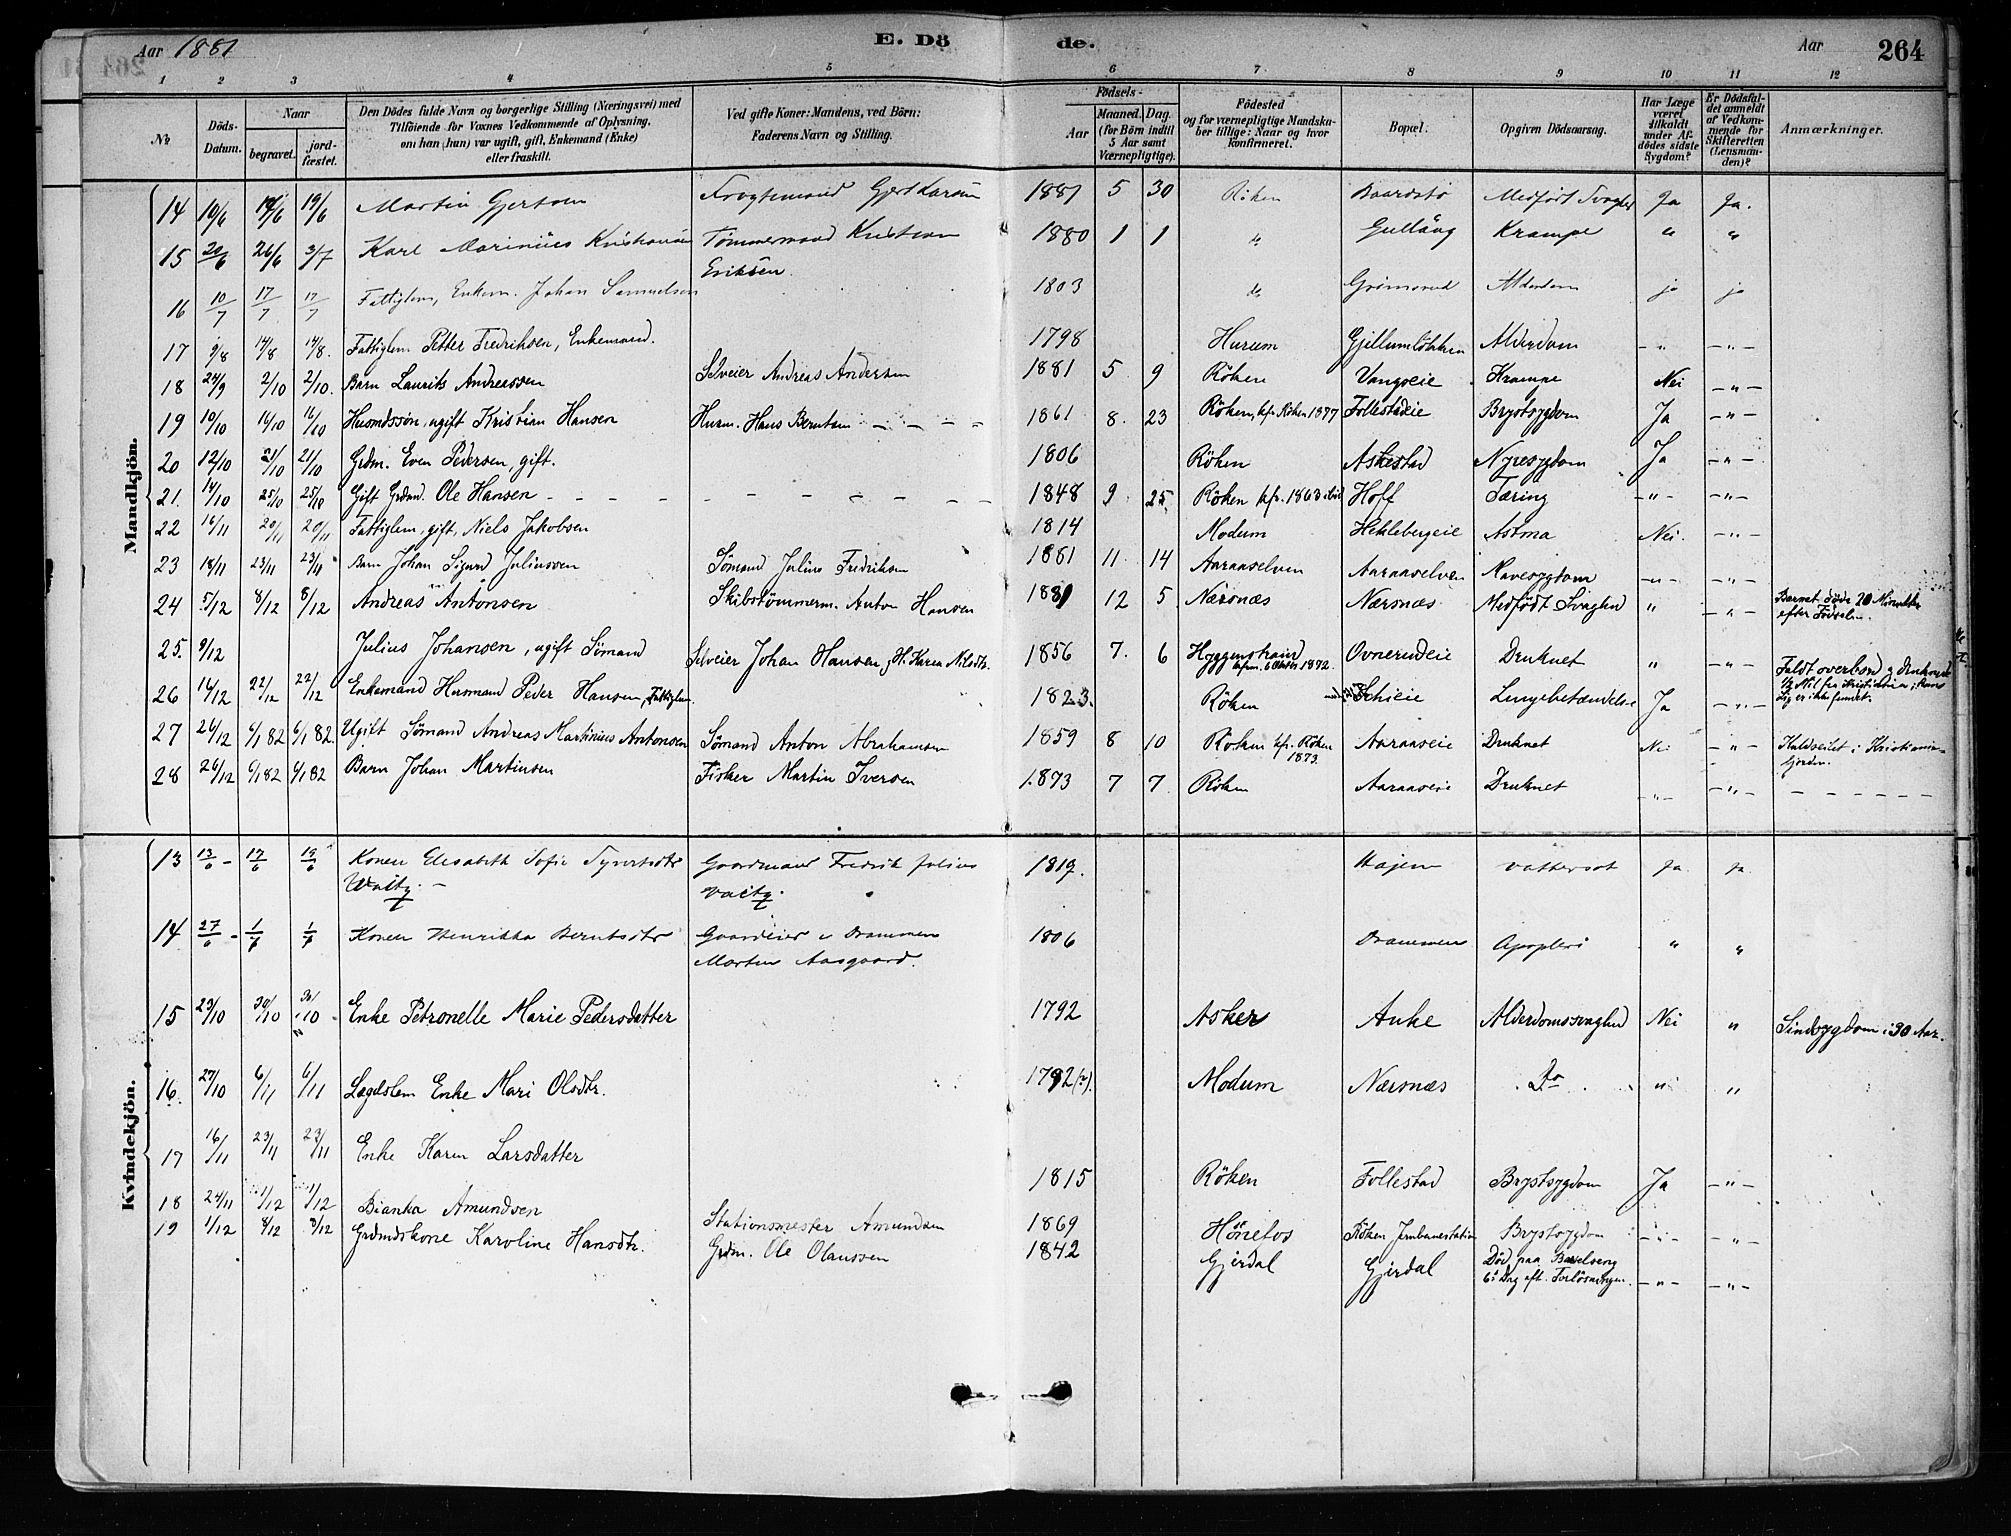 Aar 1881 E. Dö de. Aar 264
1 2 3 4 5 6 7 8 9 10 11 12
No Döds-Datum. Naar begravet. jord-fæstet. Den Dödes fulde Navn og borgerlige Stilling (Næringsvei) med Tilföiende for Voxnes Vedkommende af Oplysning, om han (hun) var ugift, gift, Enkemand (Enke) eller fraskilt. Ved gifte Koner: Mandens, ved Börn: Faderens Navn og Stilling. Födsels- Aar Maaned. Dag. (for Börn indtil 5 Aar samt Værnepligtige). Födested og for værnepligtige Mandska-ber tillige: Naar og hvor konfirmeret. Bopæl: Opgiven Dödsaarsag. Har Læge været tilkaldt under Af-dödes sidste Sygdom? Er Dödsfal-det anmeldt af Vedkom-mende for Skifteretten (Lensman-den)? Anmærkninger.
Mandkjön.
14 10/6 19/6 Martin Gjertsen Gjert 1881 5 30 Röken Medfödt Svaghed Ja Ja.
15 20/6 26/6 3/7 Karl Marinius Kristiansen Tømmermand Kristian Eriksen. 1880 1 1 do Gullaug Krampe " "
16 10/7 17/7 17/7 Fattiglem, Enkem. Johan Samuelsen 1803 do Grimsrud Alderdom ja ja
17 9/8 14/8 14/8. Fattiglem Petter Fredriksen, Enkemand. 1798 Hurum Gjellumløkken Alderdom - " - - " -
18 24/9 2/10 2/10. Barn Laurits Andreassen Selveier Andreas Andersen 1881 5 9 Röken Vangseie Krampe Nei - " -
19 10/10 16/10 16/10 Husmdssøn, ugift Kristian Hansen Husm. Hans Berntsen - - - - 1861 8. 23 Röken, kfr. Röken 1877 Follestadeie Brystsygdom Ja - " -
20 12/10 21/10 21/10 Grdm. Even Pedersen, gift. 1806 Röken Askestad Nyresygdom Ja - " -
21. 14/10 25/10 25/10 Gift Grdmd. Ole Hansen - - - - - - 1848 9 25 Röken kfr. 1863 ibid Hoff Tæring - " - - " -
22 16/11 20/11 20/11 Fattiglem, gift, Niels Jakobsen 1814 Modum Heklebergeie Astma Nei. - " -
23 18/11 23/11 23/11 Barn Johan Sigurd Juliussen Sømand Julius Fredriksen 1881 11 14 Aaraaselven Aaraaselven Mavesygdom - " - - " -
24 5/12 8/12 8/12 Andreas Antonsen Skibstømmerm. Anton Hansen 1881 12 5 Nærsnæs Nærsnæs Medfödt Svaghed " - " - Barnet døde 20 Minutter efter Födselen.
25. 9/12 Julius Johansen, ugift Sømand Selveier Johan Hansen, H. Karen Nilsdtr. 1856 7. 6 Hyggenstrand 1872. Ovnerudeie Druknet " - " - Faldt overbord og druknede 1/2 Mil fra Kristiania; hans Lig er ikke fundet.
26 14/12 22/12 22/12 Enkemand Husmand Peder Hansen, Fattiglem. 1823. Röken Lungebetændelse Ja - " -
27 26/12 6/1 82 6/1 82. Ugift Sømand Andreas Martinius Antonsen Sømand Anton Abrahamsen 1859 8 10 Röken kfr. Röken 1873 Aaraaseie Druknet Nei - " - Kuldseilet i Kristiania-fjorden.
28 26/12 6/1 82 6/1 82 Barn Johan Martinsen Fisker Martin Iversen 1873 7 7 Röken Aaraaseie Druknet - " - - " - - - - - - -
Kvindekjön.
13 13/6 - 17/6 19/6 Konen Elisabeth Sofie Syvertsdtr Waitz. - Gaardmand Fredrik Julius Vaitz. 1819. Højem Vattersot Ja ja
14 27/6 - Konen Henrikka Berntsdtr Gaardeier i Drammen Morten Aasgaard. 1806 Drammen Apoplexi " "
15 23/10 30/10 Enke Petronelle Marie Pedersdatter 1792 Asker Auke Alderdomssvaghed Nei " Sindsygdom i 30 Aar.
16. 27/10 6/11 6/11 Lægdslem Enke Mari Olsdtr. 1792 (?). Modum Nærsnæs Do " "
17 16/11 23/11 23/11 Enke Karen Larsdatter 1815 Röken Follestad Brystsygdom Ja - " -
18 24/11 1/12 1/12 Bianka Amundsen Stationsmester Amundsen 1869 Hönefos Röken Jernbanestation Brystsygdom - " - - " -
19 1/12 8/12 8/12 Grdmdskone Karoline Hansdtr. Grdm. Ole Olaussen 1842 Gjerdal Gjerdal Död paa Barselseng 6te Dag eft. Forløsningen. - " - - " -